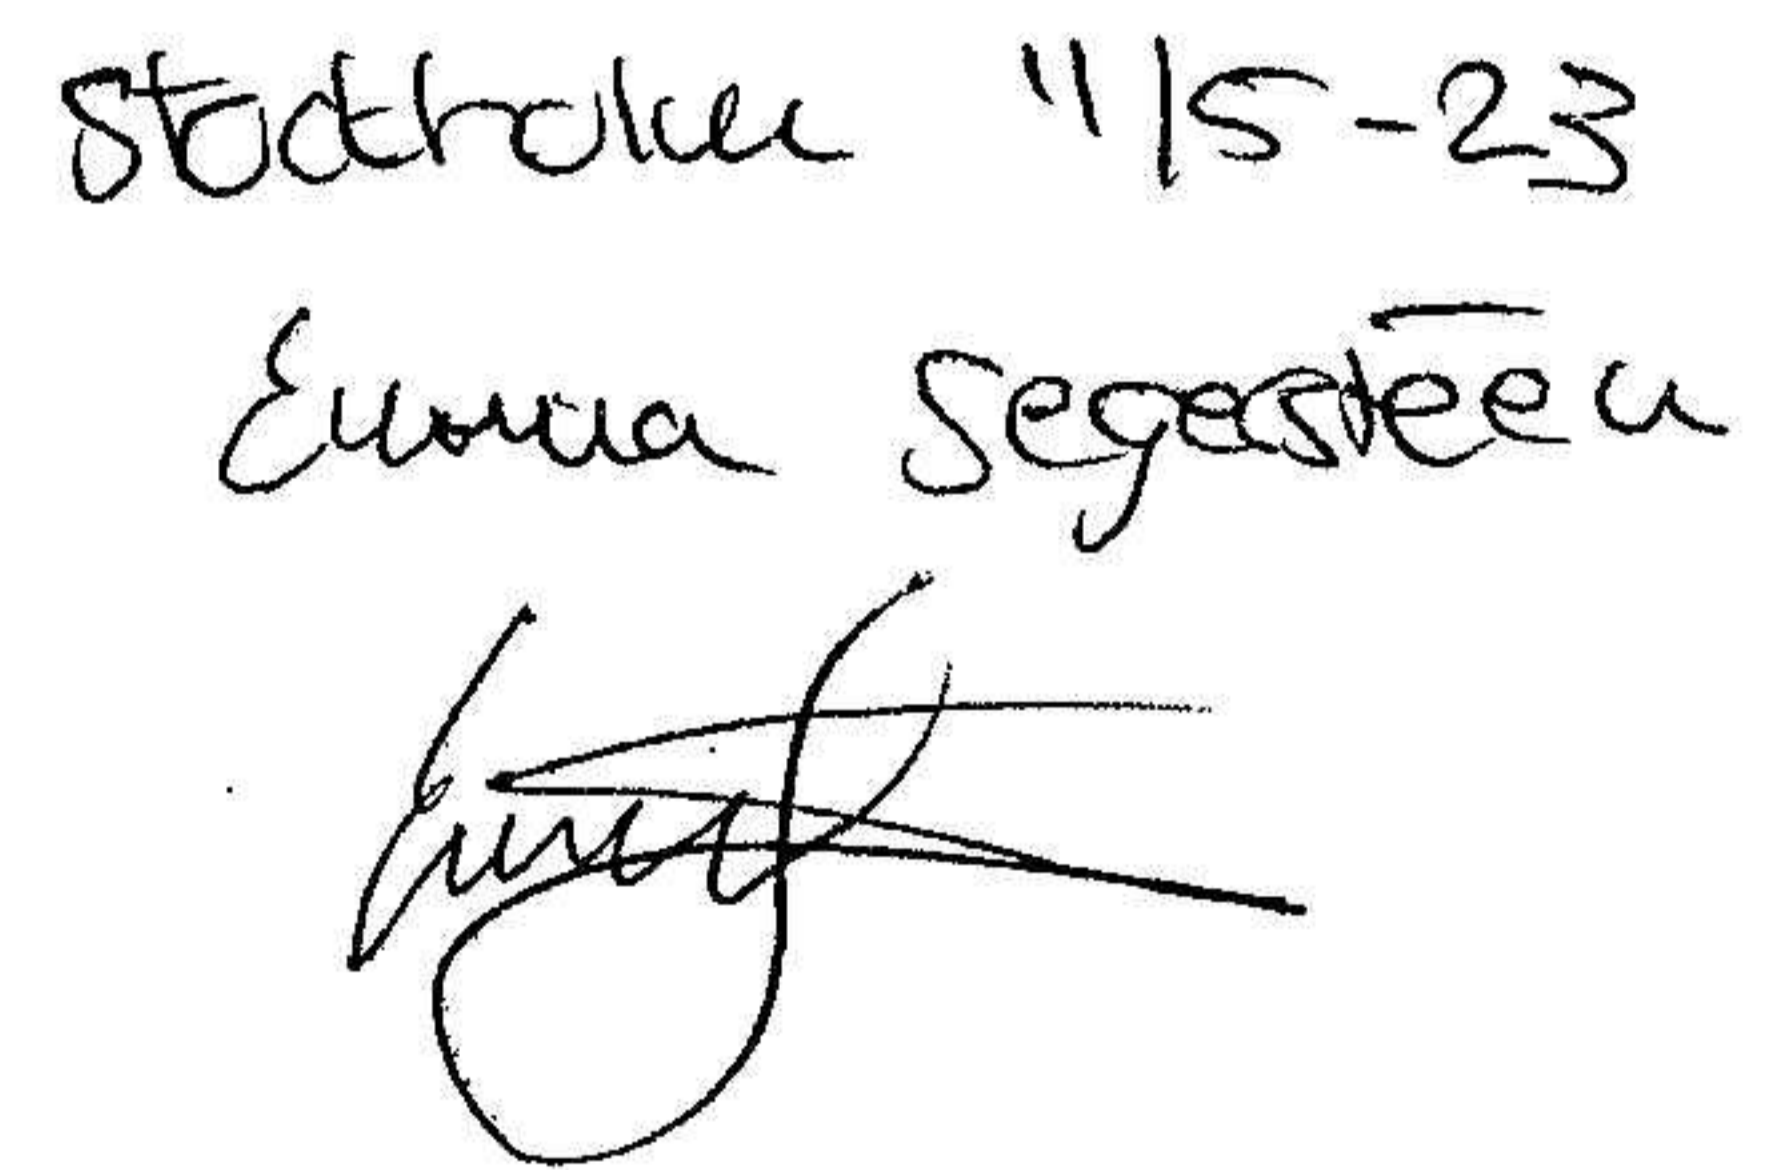 Stockholm 11/5-23
Emma Segesteen